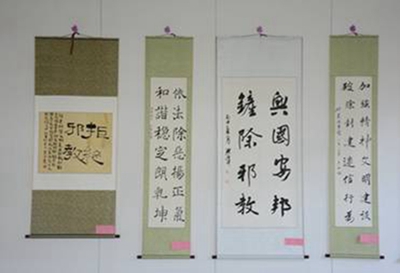 拒絕
邪教
依法除惡揚正氣
和諧穩定朗乾坤
興國安邦
鏟除邪教
加強精神文明建設
破除封建迷信行為